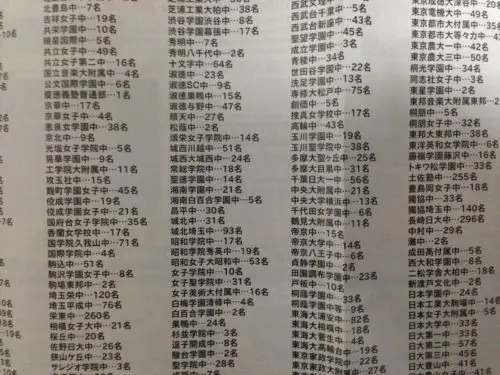 北豊島中…7名
吉祥女子中…24名
共栄学園中…10名
暁星国際中…5名
共立女子中…49名
共立女子第二中…16名
国立音楽大附属中…4名
公文国際学園中…6名
慶應義塾普通部…1名
京華中…17名
京華女子中…4名
恵泉女学園中…38名
京北中…9名
光塩女子学院中…5名
晃華学園中…9名
工学院大附属中…11名
攻玉社中…15名
麹町学園女子中…45名
佼成学園中…19名
佼成学園女子中…21名
国府台女子学院中…35名
香蘭女学校中…17名
国学院久我山中…71名
国際学院中…4名
駒込中…51名
駒沢学園女子中…8名
駒場東邦中…2名
埼玉栄中…120名
埼玉平成中…76名
栄東中…260名
相模女子大中…21名
桜丘中…20名
佐野日大中…26名
狭山ケ丘中…23名
サレジオ学院中…3名
芝浦工業大柏中…28名
渋谷学園渋谷中…8名
渋谷学園幕張中…17名
秀明中…7名
秀明八千代中…2名
十文字中…64名
淑徳中…23名
淑徳SC中…9名
淑徳巣鴨中…15名
淑徳与野中…47名
順天中…27名
松蔭中…2名
頌栄女子学院中…14名
城西川越中…51名
城西大城西中…24名
常総学院中…18名
聖徳学園中…14名
湘南学園中…21名
湘南白百合学園中…5名
昌平中…30名
城北中…31名
城北埼玉中…93名
昭和学院中…17名
昭和学院秀英中…19名
昭和女子大昭和中…53名
女子学院中…10名
女子聖学院中…31名
女子美術大付属中…16名
白梅学園清修中…4名
白百合学園中…2名
巣鴨中…24名
杉並学院中…3名
逗子開成中…8名
駿台学園中…2名
聖学院中…28名
西武台千葉中…5名
西武台新座中…43名
聖望学園中…33名
成立学園中…3名
青稜中…34名
世田谷学園中…22名
洗足学園中…13名
専修大松戸中…75名
創価中…5名
捜真女学校中…17名
高輪中…43名
玉川学園中…19名
玉川聖学院中…38名
多摩大聖ヶ丘中…25名
多摩大目黒中…31名
千葉日大一中…56名
中央大附属中…21名
中央大学横浜中…13名
千代田女学園中…6名
鶴見大附属中…11名
帝京中…15名
帝京大学中…14名
帝京八王子中…6名
貞静学園中…2名
田園調布学園中…23名
戸板中…10名
桐蔭学園中…33名
桐蔭学園中等…9名
東海大浦安中…82名
東海大相模中…18名
東海大菅生中…4名
東海大高輪台中…33名
東京家政学院中…22名
東京電機大中…49名
東京都市大付属中…35名
東京農大一中…42名
東京農大三中…50名
桐光学園中…34名
同志社女子中…3名
東星学園中…2名
東邦音楽大附属東邦中…2名
桐朋中…5名
桐朋女子中…32名
東邦大東邦中…38名
東洋英和女学院中…6名
藤嶺学園藤沢中…16名
トキワ松学園中…33名
土佐塾中…255名
豊島岡女子中…18名
獨協中…33名
獨協埼玉中…140名
長崎日大中…296名
中村中…29名
灘中…2名
成田高付属中…5名
西大和学園中…8名
二松学舎大柏中…18名
新渡戸文化中…2名
日本学園中…24名
日本工業大駒場中…14名
日本大学中…33名
日大第一中…33名
日大第二中…27名
日大第三中…45名